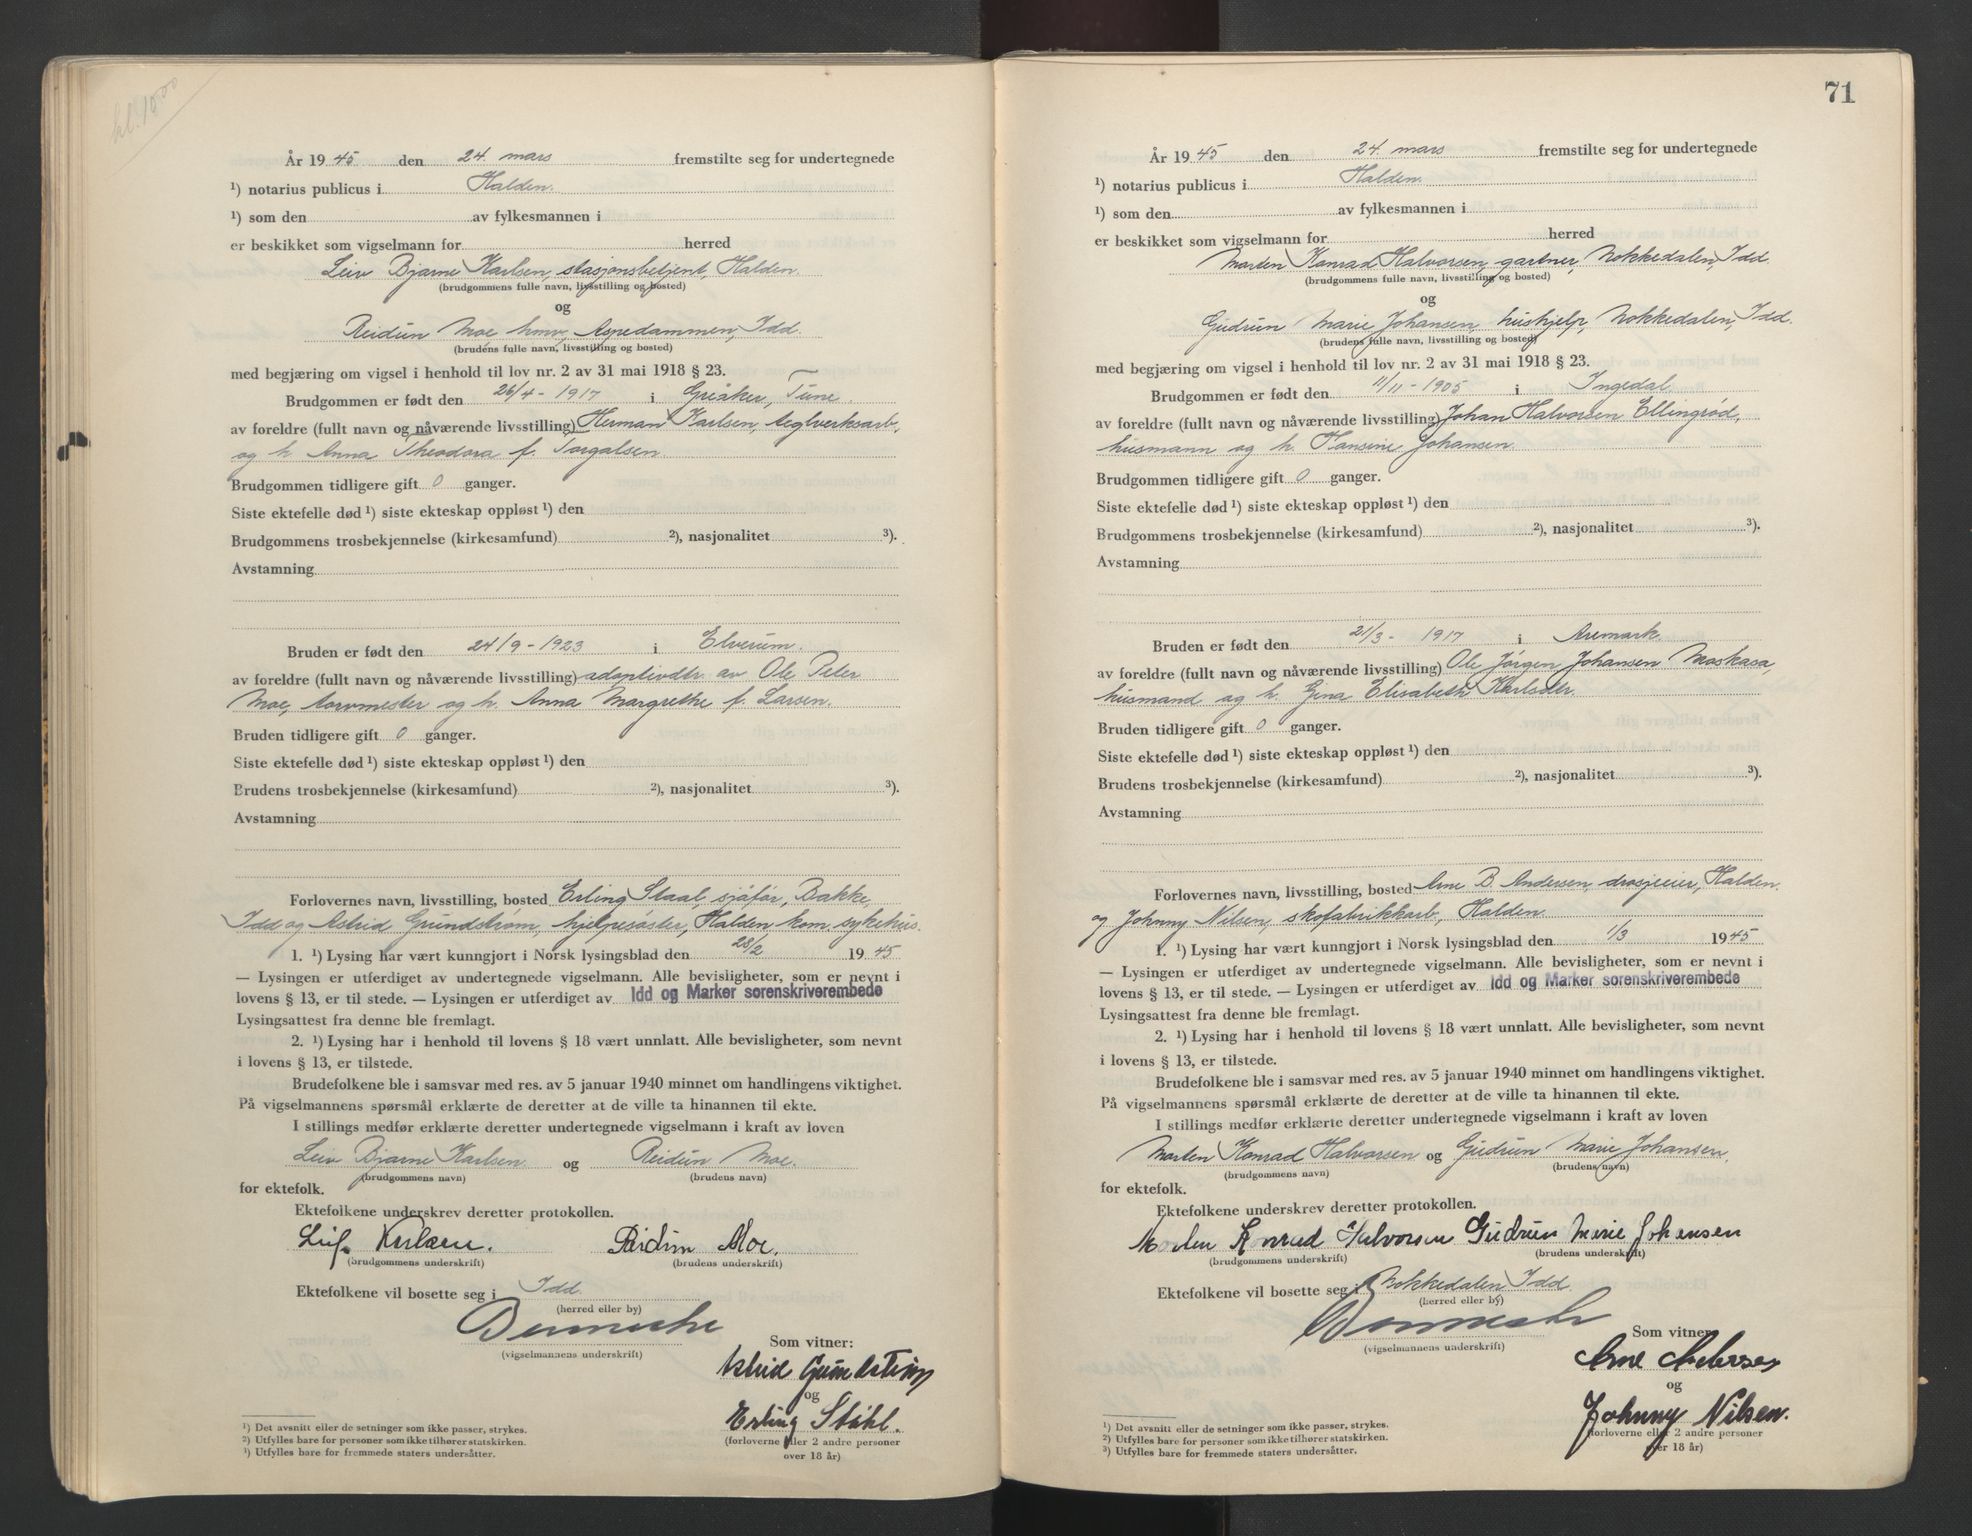 kl. 15.00
År 19 45 den 24. mars fremstilte seg for undertegnede
¹) notarius publicus i Halden.
¹) som den av fylkesmannen i
er beskikket som vigselmann for herred
Leiv Bjarne Karlsen, stasjonsbetjent, Halden.
(brudgommens fulle navn, livsstilling og bosted)
og
Reidun Moe hmv, Aspedammen, Idd.
(brudens fulle navn, livsstilling og bosted)
med begjæring om vigsel i henhold til lov nr. 2 av 31 mai 1918 § 23.
Brudgommen er født den 26/4 - 1917 i Greåker, Tune.
av foreldre (fullt navn og nåværende livsstilling) Herman Karlsen, teglverksarb,
og h. Anna Theodora f. Torgalsen.
Brudgommen tidligere gift 0 ganger.
Siste ektefelle død ¹) siste ekteskap oppløst ¹) den
Brudgommens trosbekjennelse (kirkesamfund) ²), nasjonalitet ³).
Avstamning
Bruden er født den 24/9 - 1923 i Elverum.
av foreldre (fullt navn og nåværende livsstilling) adoptivdtr. av Ole Peter
Moe, torvmester og h. Anna Margrethe f. Larsen.
Bruden tidligere gift 0 ganger.
Siste ektefelle død ¹) siste ekteskap oppløst ¹) den
Brudens trosbekjennelse (kirkesamfund) ²), nasjonalitet ³).
Avstamning
Forlovernes navn, livsstilling, bosted Erling Staal, sjåfør, Bakke,
Idd og Astrid Grundstrøm, hjelpesøster, Halden kom. sykehus.
1. ¹) Lysing har vært kunngjort i Norsk lysingsblad den 28/2 19 45
— Lysingen er utferdiget av undertegnede vigselmann. Alle bevisligheter, som er nevnt i
lovens § 13, er til stede. — Lysingen er utferdiget av Idd og Marker sorenskriverembede
Lysingsattest fra denne ble fremlagt.
2. ¹) Lysing har i henhold til lovens § 18 vært unnlatt. Alle bevisligheter, som nevnt
i lovens § 13, er tilstede.
Brudefolkene ble i samsvar med res. av 5 januar 1940 minnet om handlingens viktighet.
På vigselmannens spørsmål erklærte de deretter at de ville ta hinannen til ekte.
I stillings medfør erklærte deretter undertegnede vigselmann i kraft av loven
Leiv Bjarne Karlsen og Reidun Moe.
(brudgommens navn) (brudens navn)
for ektefolk.
Ektefolkene underskrev deretter protokollen.
Leif Karlsen. Reidun Moe.
(brudgommens underskrift) (brudens underskrift)
Ektefolkene vil bosette seg i Idd.
(herred eller by)
(vigselmannens underskrift)
Som vitner:
Astrid Grundstrøm
og
Erling Ståhl.
(forloverne eller 2 andre personer
over 18 år)
¹) Det avsnitt eller de setninger som ikke passer, strykes.
²) Utfylles bare for personer som ikke tilhører statskirken.
³) Utfylles bare for fremmede staters undersåtter.
71
År 19 45 den 24. mars fremstilte seg for undertegnede
¹) notarius publicus i Halden.
¹) som den av fylkesmannen i
er beskikket som vigselmann for herred
Morten Konrad Halvorsen, gartner, Nokkedalen, Idd.
(brudgommens fulle navn, livsstilling og bosted)
og
Gudrun Marie Johansen, hushjelp, Nokkedalen, Idd.
(brudens fulle navn, livsstilling og bosted)
med begjæring om vigsel i henhold til lov nr. 2 av 31 mai 1918 § 23.
Brudgommen er født den 11/11 - 1905 i Ingedal
av foreldre (fullt navn og nåværende livsstilling) Johan Halvorsen Ellingrød,
husmann og h. Hansine Johansen.
Brudgommen tidligere gift 0 ganger.
Siste ektefelle død ¹) siste ekteskap oppløst ¹) den
Brudgommens trosbekjennelse (kirkesamfund) ²), nasjonalitet ³).
Avstamning
Bruden er født den 21/3 - 1917 i Aremark.
av foreldre (fullt navn og nåværende livsstilling) Ole Jørgen Johansen Moskasa,
husmand og h. Gina Elisabeth Karlsdtr.
Bruden tidligere gift 0 ganger.
Siste ektefelle død ¹) siste ekteskap oppløst ¹) den
Brudens trosbekjennelse (kirkesamfund) ²), nasjonalitet ³).
Avstamning
Forlovernes navn, livsstilling, bosted Arne B. Andersen, drosjeeier, Halden.
og Johnny Nilsen, skofabrikkarb, Halden.
1. ¹) Lysing har vært kunngjort i Norsk lysingsblad den 1/3 19 45
— Lysingen er utferdiget av undertegnede vigselmann. Alle bevisligheter, som er nevnt i
lovens § 13, er til stede. — Lysingen er utferdiget av Idd og Marker sorenskriverembede
Lysingsattest fra denne ble fremlagt.
2. ¹) Lysing har i henhold til lovens § 18 vært unnlatt. Alle bevisligheter, som nevnt
i lovens § 13, er tilstede.
Brudefolkene ble i samsvar med res. av 5 januar 1940 minnet om handlingens viktighet.
På vigselmannens spørsmål erklærte de deretter at de ville ta hinannen til ekte.
I stillings medfør erklærte deretter undertegnede vigselmann i kraft av loven
Morten Konrad Halvorsen og Gudrun Marie Johansen.
(brudgommens navn) (brudens navn)
for ektefolk.
Ektefolkene underskrev deretter protokollen.
Morten Konrad Halvorsen Gudrun Marie Johansen
(brudgommens underskrift) (brudens underskrift)
Ektefolkene vil bosette seg i Nokkedalen, Idd
(herred eller by)
(vigselmannens underskrift)
Som vitner:
Arne Andersen
og
Johnny Nilsen.
(forloverne eller 2 andre personer
over 18 år)
¹) Det avsnitt eller de setninger som ikke passer, strykes.
²) Utfylles bare for personer som ikke tilhører statskirken.
³) Utfylles bare for fremmede staters undersåtter.